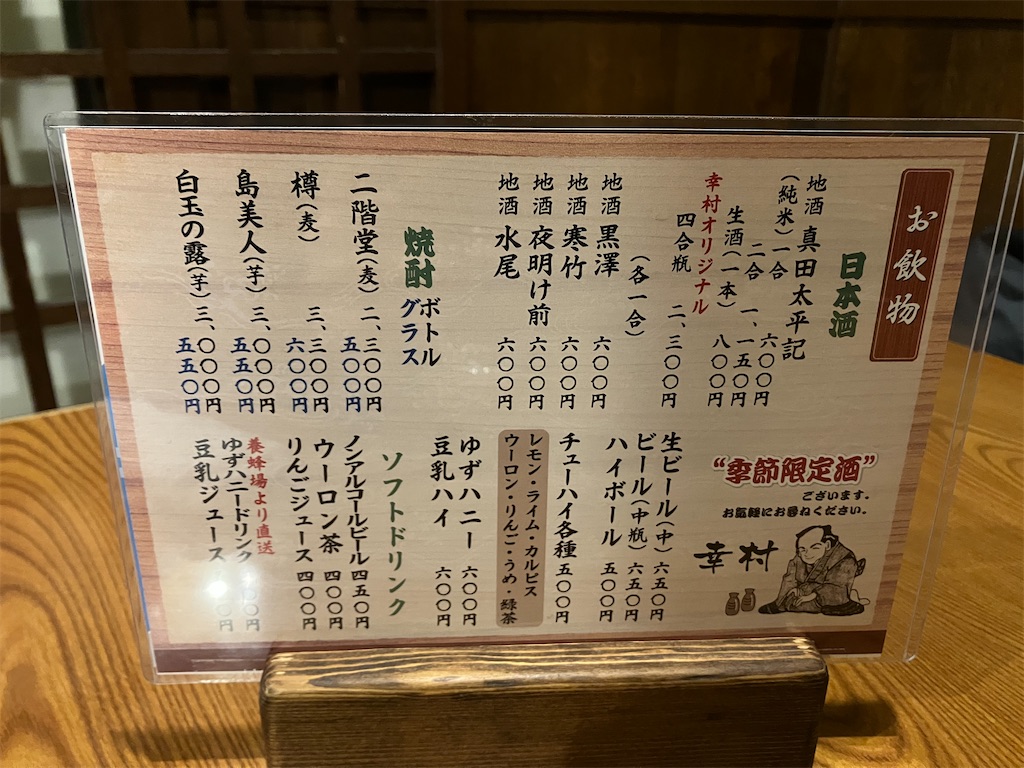 お飲物
日本酒
地酒 真田太平記
(純米)一合 六〇〇円
二合 一、一五〇円
生酒(一本) 八〇〇円
幸村オリジナル
四合瓶 二、三〇〇円
(各一合)
地酒 黒澤 六〇〇円
地酒 寒竹 六〇〇円
地酒 夜明け前 六〇〇円
地酒 水尾 六〇〇円
焼酎 ボトル
グラス
二階堂(麦) 二、三〇〇円
五〇〇円
樽(麦) 三、三〇〇円
六〇〇円
島美人(芋) 三、〇〇〇円
五五〇円
白玉の露(芋) 三、〇〇〇円
五五〇円
“季節限定酒”
ございます。
お気軽にお尋ねください。
幸村
生ビール(中) 六五〇円
ビール(中瓶) 六五〇円
ハイボール 五〇〇円
チューハイ各種 五〇〇円
レモン・ライム・カルピス
ウーロン・りんご・うめ・緑茶
ゆずハニー 六〇〇円
豆乳ハイ 六〇〇円
ソフトドリンク
ノンアルコールビール 四五〇円
ウーロン茶 四〇〇円
りんごジュース 四〇〇円
養蜂場より直送
ゆずハニードリンク 〇〇円
豆乳ジュース 〇〇円